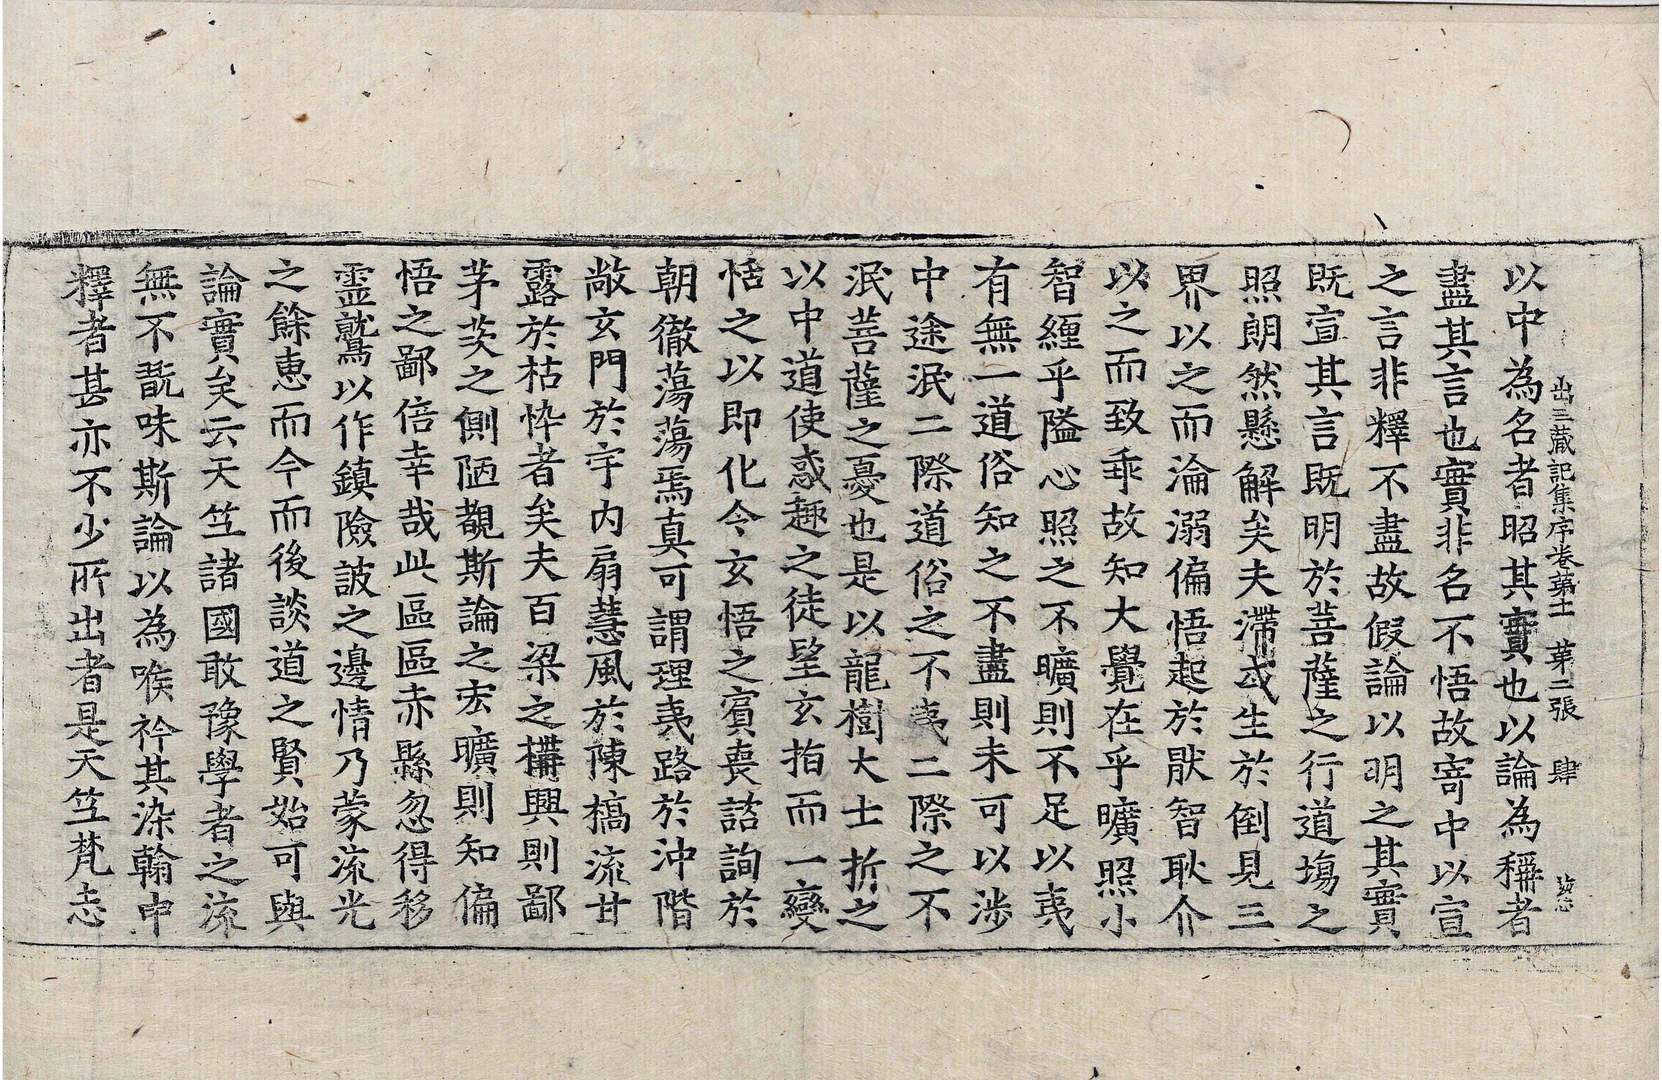 出三藏記集序卷第十一　第二張　肆
以中為名者昭其實也以論為稱者
盡其言也實非名不悟故寄中以宣
之言非釋不盡故假論以明之其實
既宣其言既明於菩薩之行道塲之
照朗然懸解矣夫滯或生於倒見三
界以之而淪溺偏悟起於厭智耿介
以之而致乖故知大覺在乎曠照小
智纏乎隘心照之不曠則不足以夷
有無一道俗知之不盡則未可以涉
中途泯二際道俗之不夷二際之不
泯菩薩之憂也是以龍樹大士折之
以中道使惑趣之徒望玄指而一變
恬之以即化令玄悟之賓喪諮詢於
朝徹蕩蕩焉真可謂理夷路於沖階
敞玄門於宇內扇慧風於陳槁流甘
露於枯悴者矣夫百梁之構興則鄙
茅茨之側陋覩斯論之宏曠則知偏
悟之鄙倍幸哉此區區赤縣忽得移
靈鷲以作鎮險詖之邊情乃蒙流光
之餘惠而今而後談道之賢始可與
論實矣云天竺諸國敢豫學者之流
無不翫味斯論以為喉衿其染翰申
釋者甚亦不少所出者是天竺梵志